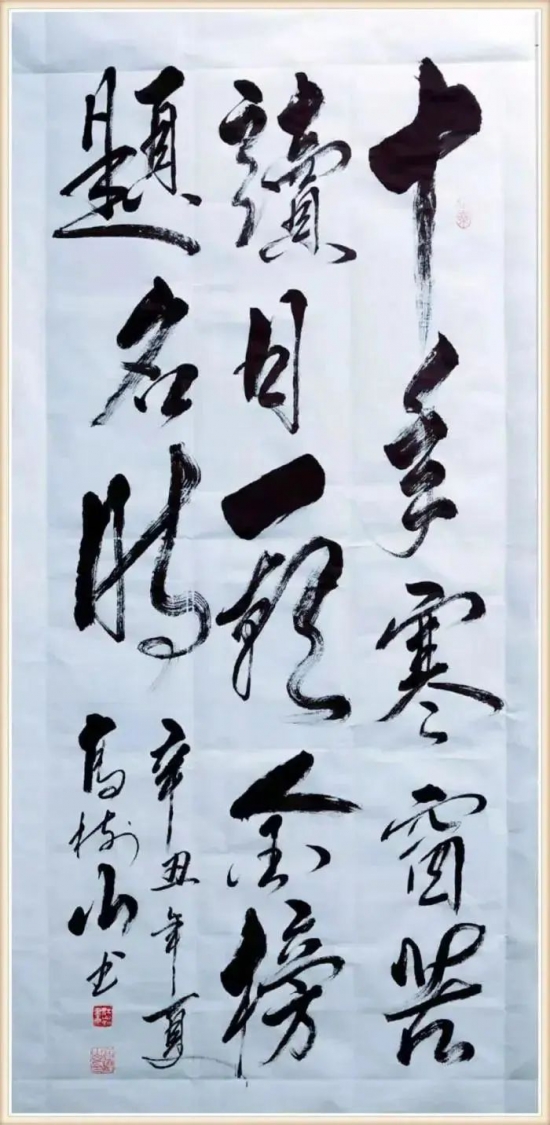 十年寒窗苦
讀日一朝金榜
題名時
辛丑年夏
高树山书